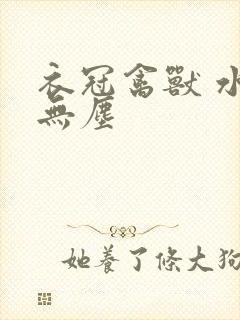 衣冠禽獸 水
無塵
她養了條大狗